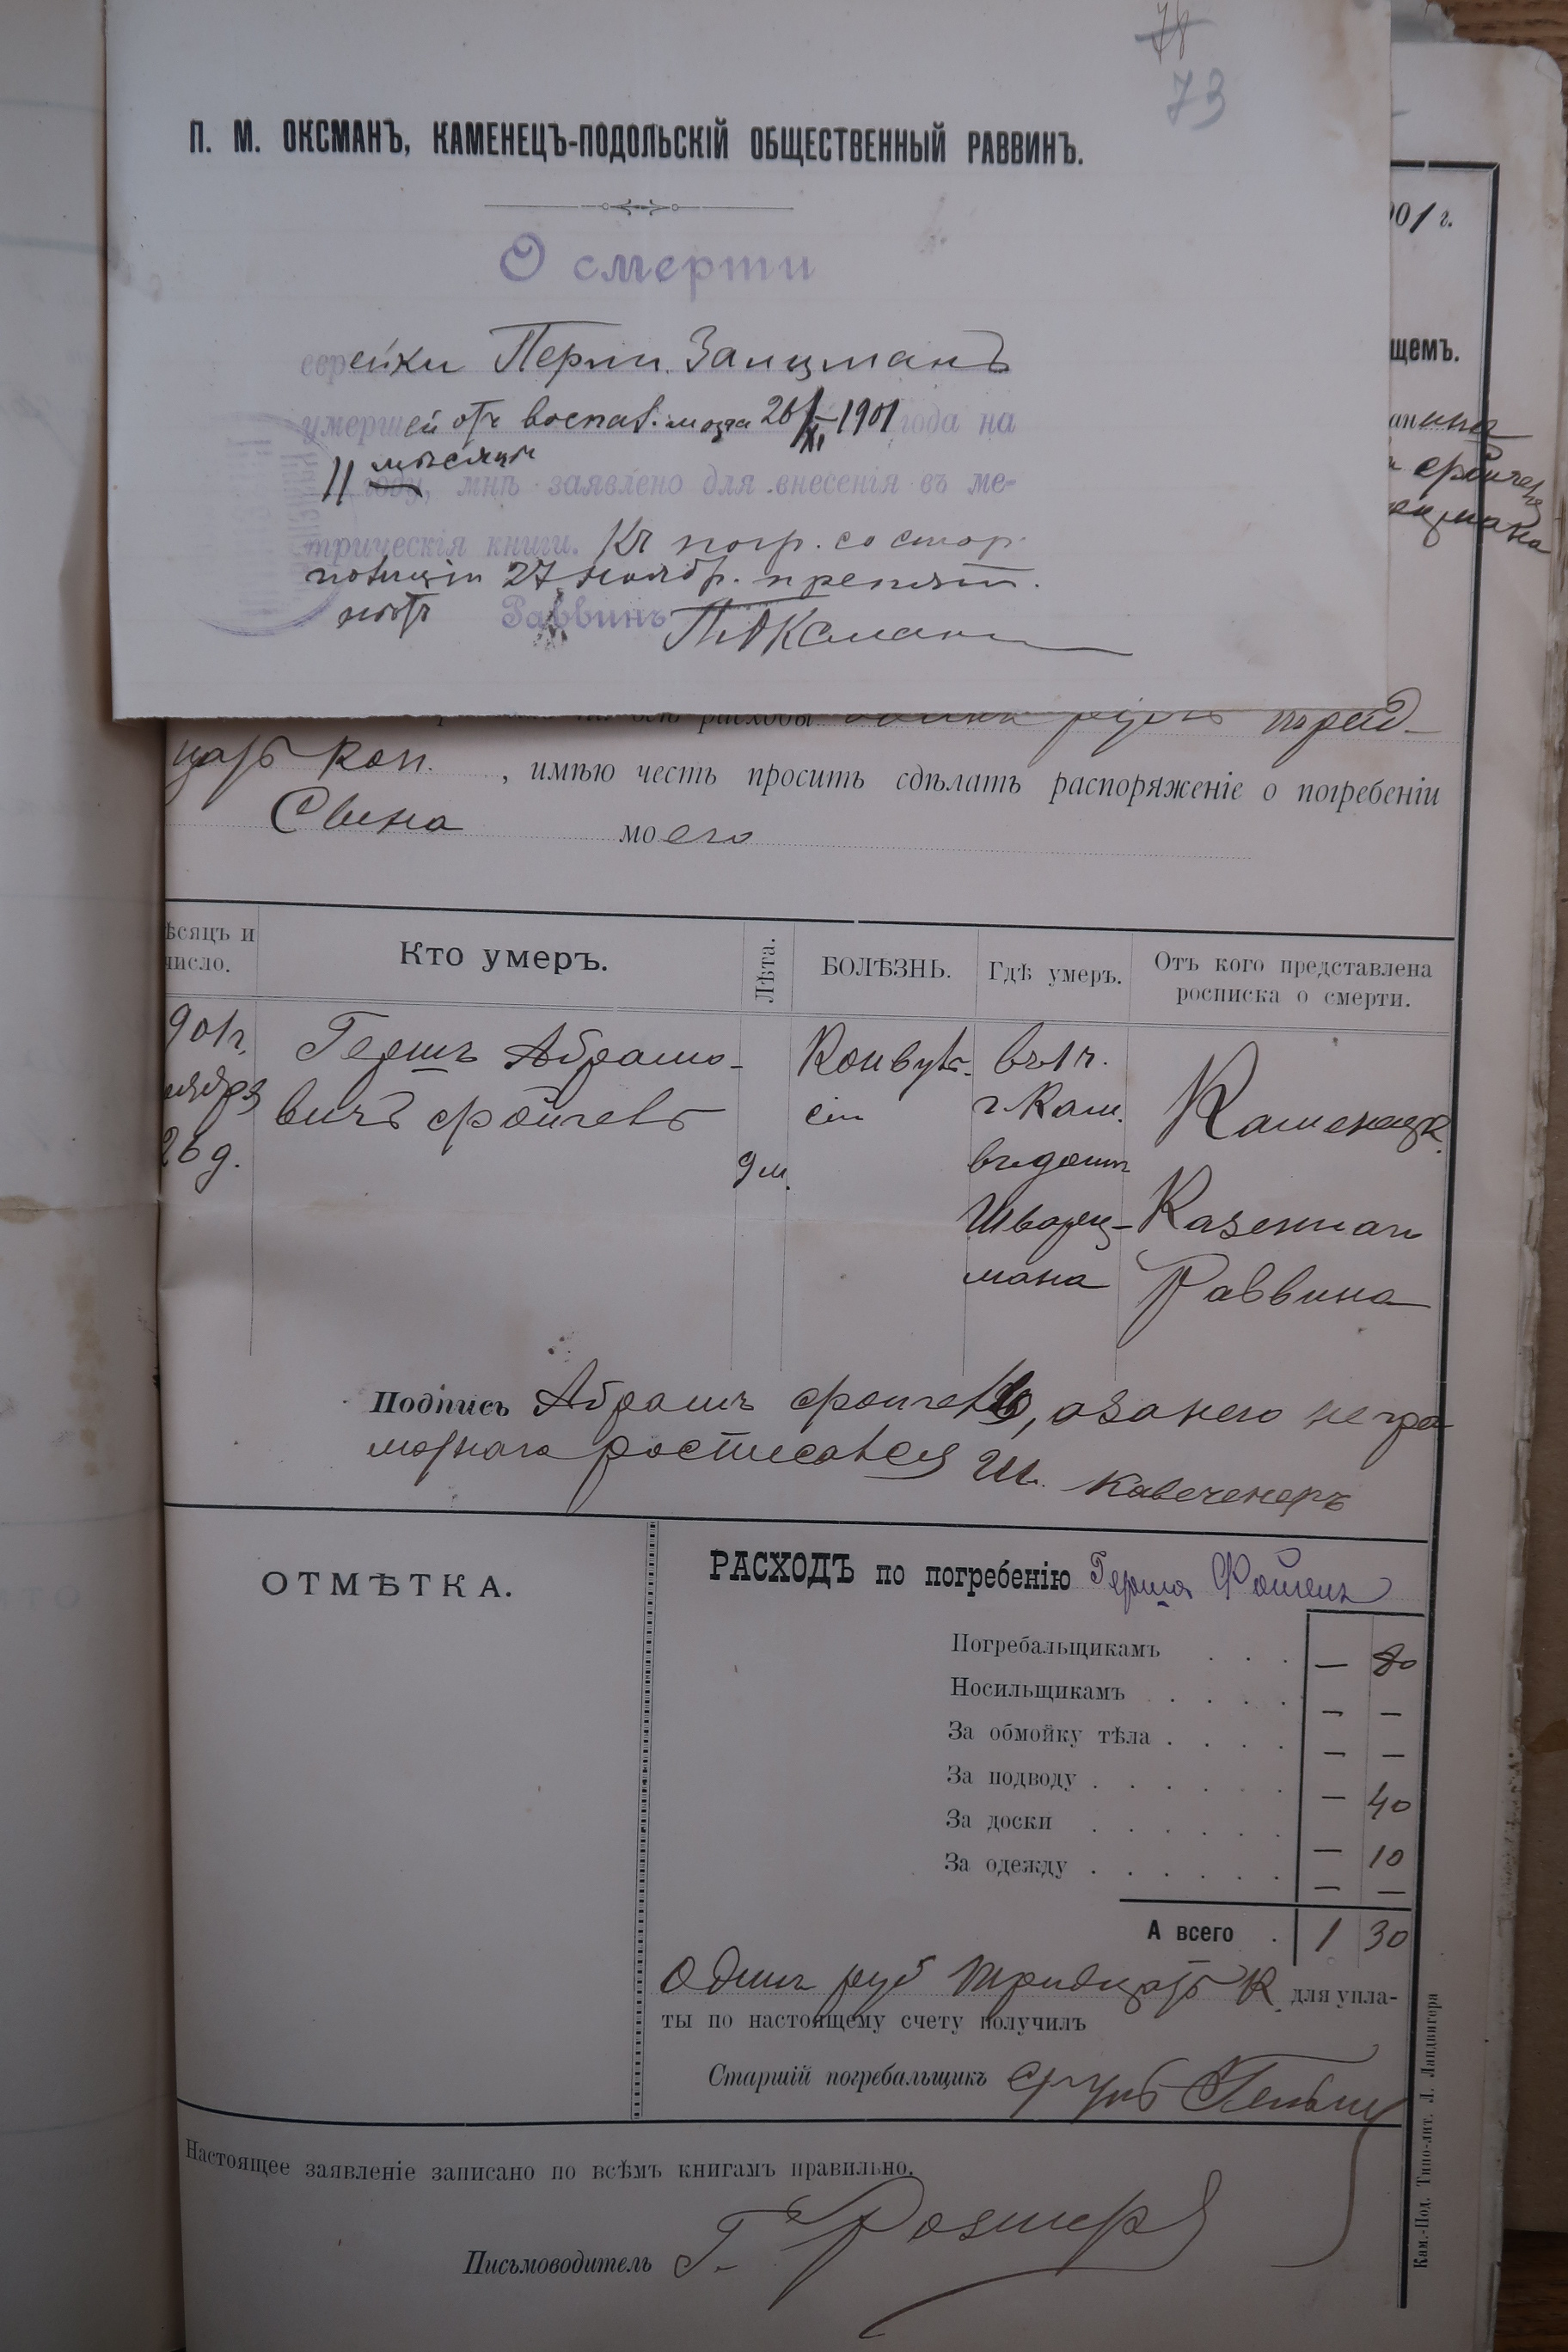 78
73
П. М. ОКСМАНЪ, КАМЕНЕЦЪ-ПОДОЛЬСКІЙ ОБЩЕСТВЕННЫЙ РАВВИНЪ.
О смерти
еврейки Перли Залцманъ
умершей отъ воспал. мозга 26/XI 1901 года на
11 мѣсяцѣ
году, мнѣ заявлено для внесенія въ ме-
трическія книги. Къ погр. со стор.
полиціи 27 ноябр. препят.
нѣтъ Раввинъ П. Оксманъ
901 г.
щемъ.
расходы одинъ рубль трид-
цать коп. , имѣю честь просить сдѣлать распоряженіе о погребеніи
Сына моего
ѣсяцъ и число.
Кто умеръ.
Лѣта.
БОЛѢЗНЬ.
Гдѣ умеръ.
Отъ кого представлена росписка о смерти.
901г. ноября 26 д.
Гершъ Абрамо-
вичъ Фойгель
9 м.
Конвуль-
сіи
въ 1 ч.
г. Кам.
въ домѣ
Шварц-
мана
Каменецк.
Казеннаго
Раввина
Подпись Абрамъ Фойгель, а за него негра
мотнаго росписался Ш.
ОТМѢТКА.
РАСХОДЪ по погребенію Герша Фойгель
Погребальщикамъ . . . — 80
Носильщикамъ . . . . — —
За обмойку тѣла . . . . — —
За подводу . . . . . . — 40
За доски . . . . . . — 10
За одежду . . . . . . — —
А всего . 1 30
Одинъ руб тридцать К. для упла-
ты по настоящему счету получилъ
Старшій погребальщикъ
Настоящее заявленіе записано по всѣмъ книгамъ правильно.
Письмоводитель Г.
Кам.-Под. Типо-лит. Л. Ландвигера